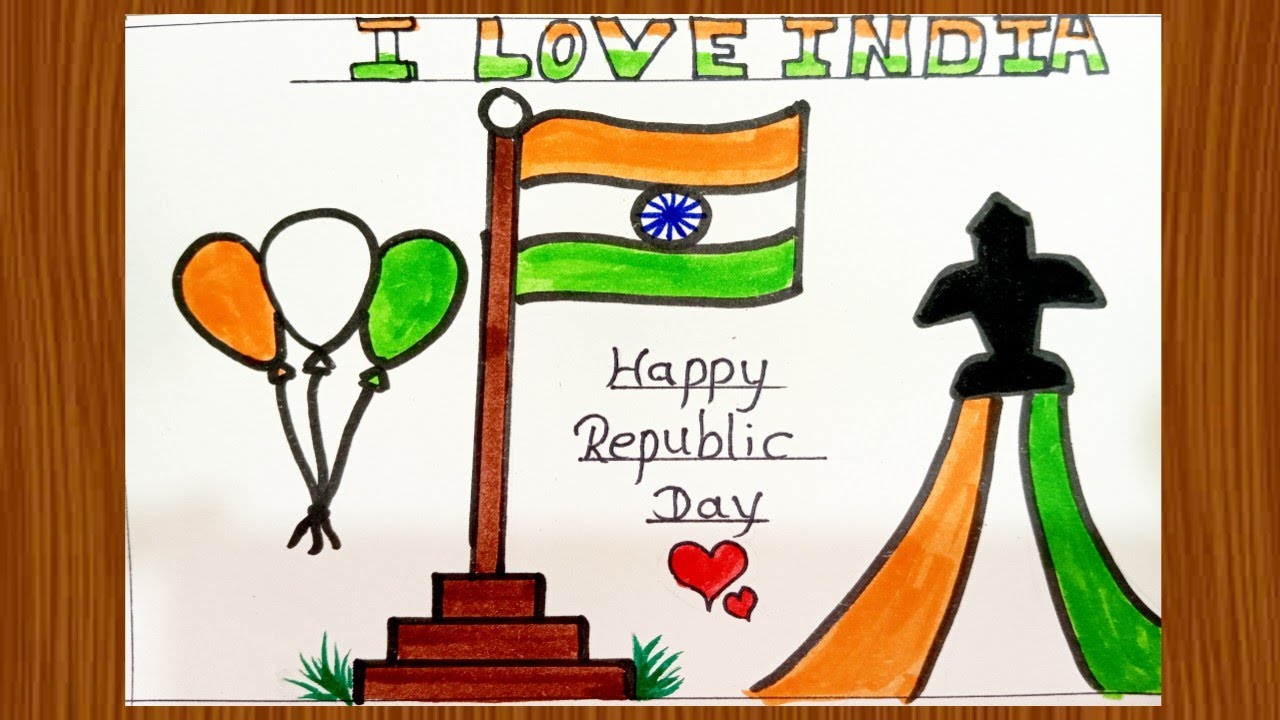 I LOVE INDIA
Happy
Republic
Day